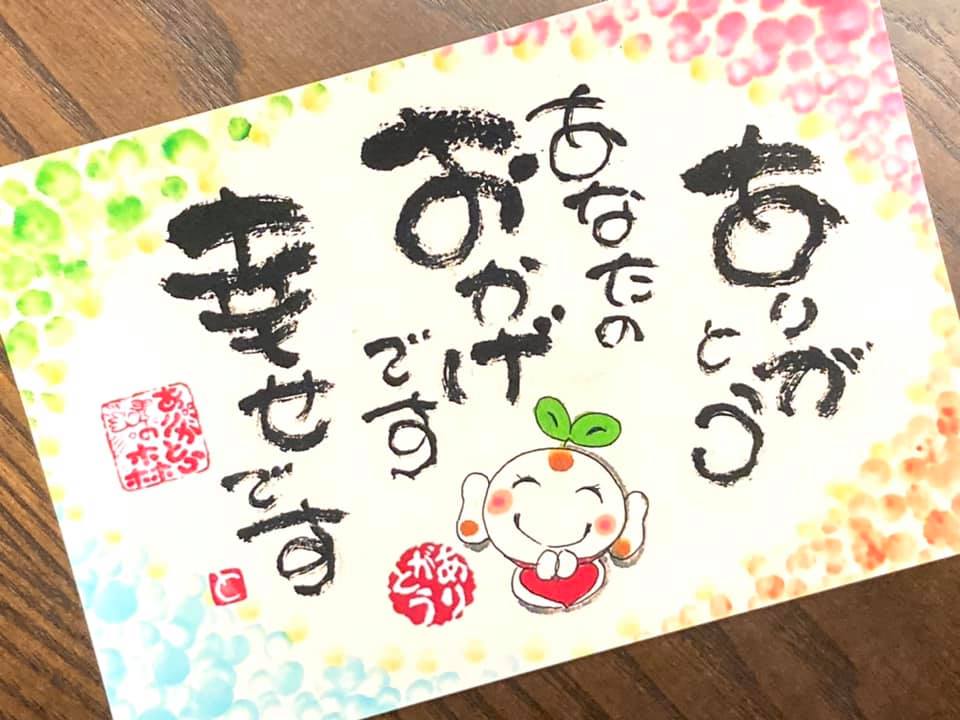 ありがとう
あなたの
おかげです
幸せです
ありがとう
の森
ありがとう
と